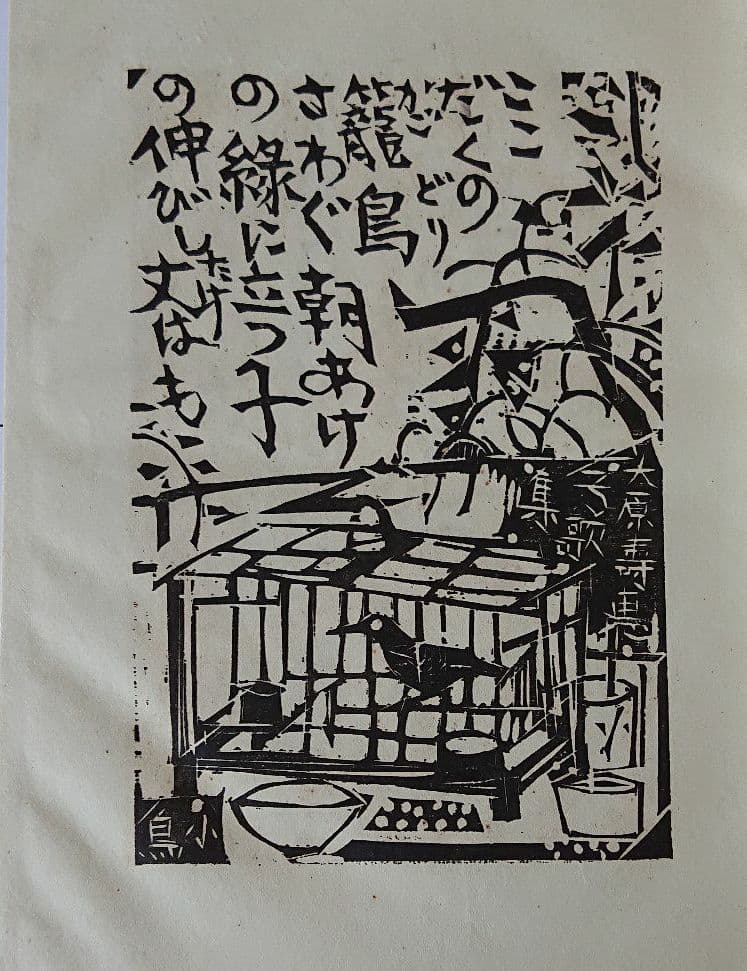 ここ
だくの
かごどり
籠鳥
さわぐ 朝あけ
の綠に立つ子
の伸びし丈はも
たけ
大原寿恵
子歌
集
小鳥